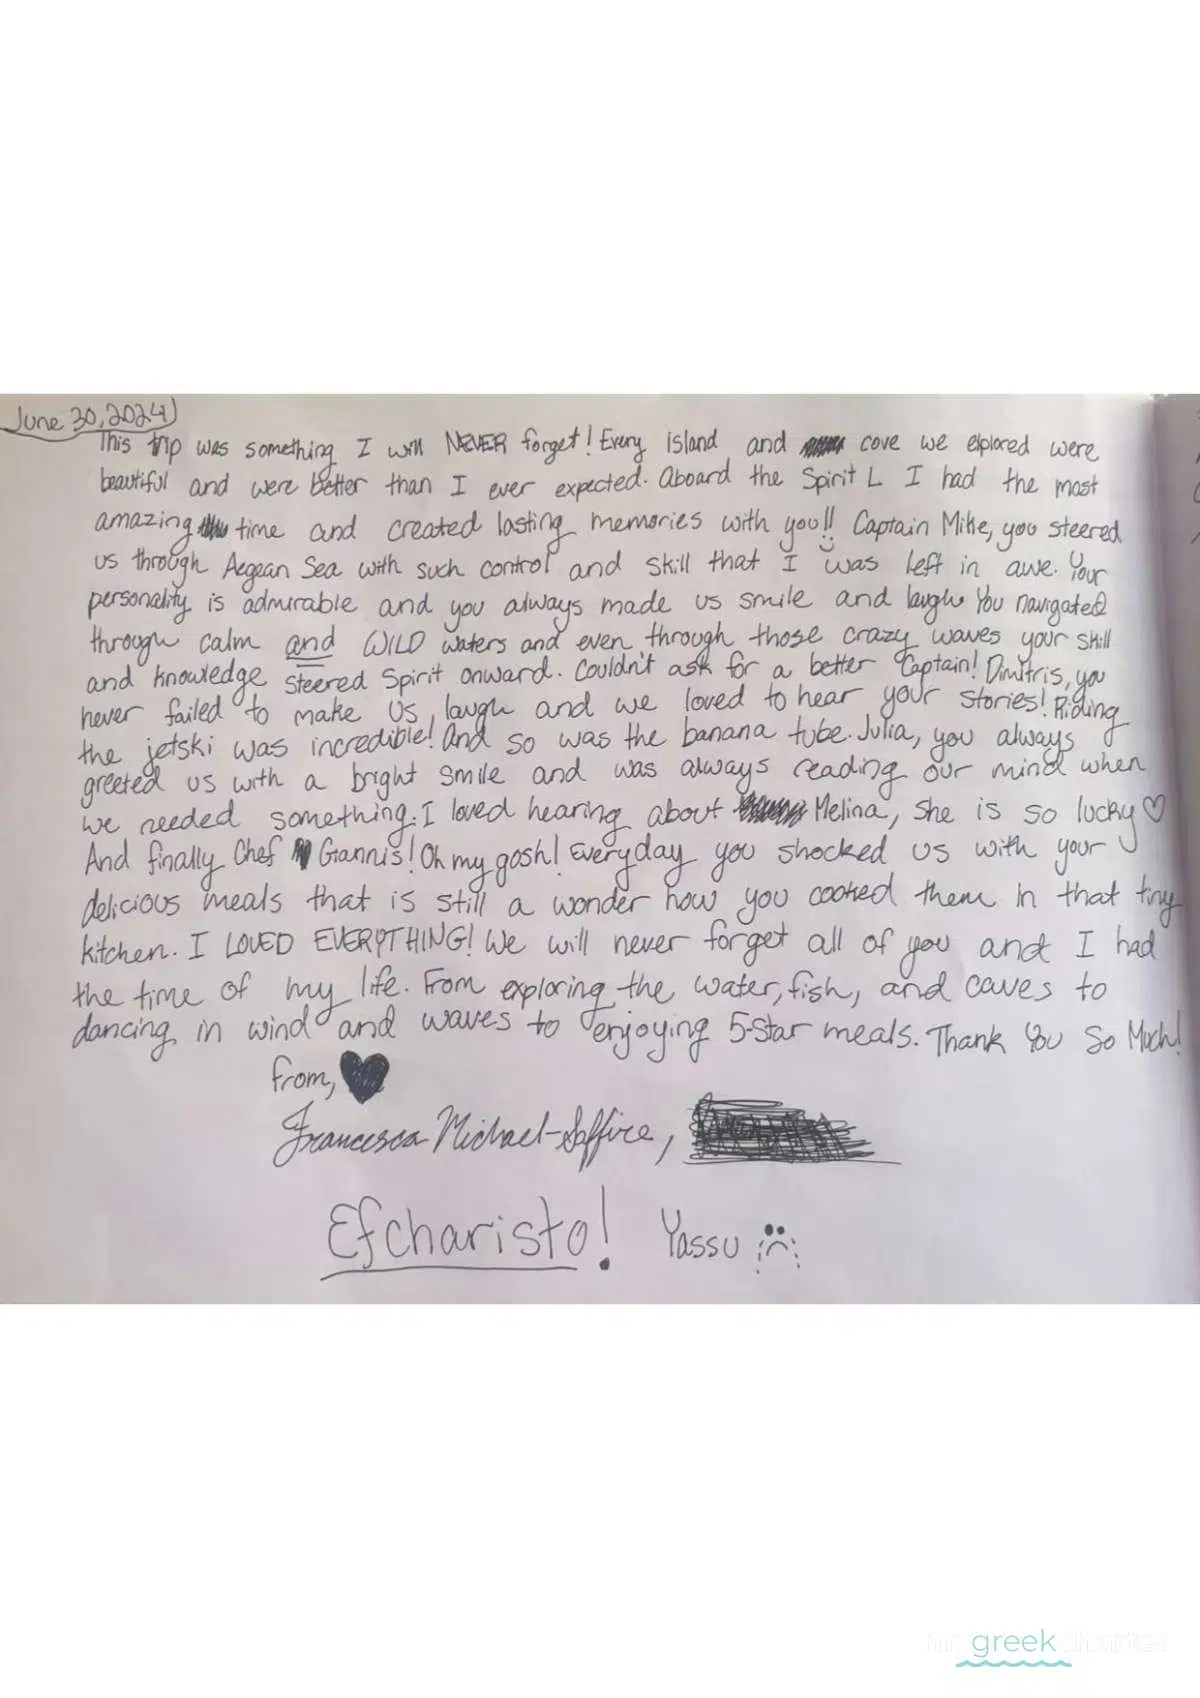 June 30, 2024
This trip was something I will NEVER forget! Every island and cove we explored were
beautiful and were better than I ever expected. Aboard the Spirit L I had the most
amazing time and created lasting memories with you!! Captain Mike, you steered
us through Aegean Sea with such control and skill that I was left in awe. Your
personality is admirable and you always made us smile and laugh. You navigated
through calm and WILD waters and even through those crazy waves your skill
and knowledge steered Spirit onward. Couldn't ask for a better Captain! Dimitris, you
never failed to make us laugh and we loved to hear your stories! Riding
the jetski was incredible! And so was the banana tube. Julia, you always
greeted us with a bright smile and was always reading our mind when
we needed something. I loved hearing about Melina, she is so lucky ♡
And finally Chef Giannis! Oh my gosh! Everyday you shocked us with your
delicious meals that is still a wonder how you cooked them in that tiny
kitchen. I LOVED EVERYTHING! We will never forget all of you and I had
the time of my life. From exploring the water, fish, and caves to
dancing in wind and waves to enjoying 5-star meals. Thank You So Much!
from, ♥
Francesca Michael-Saffire,
Efcharisto! Yassu
greek charter